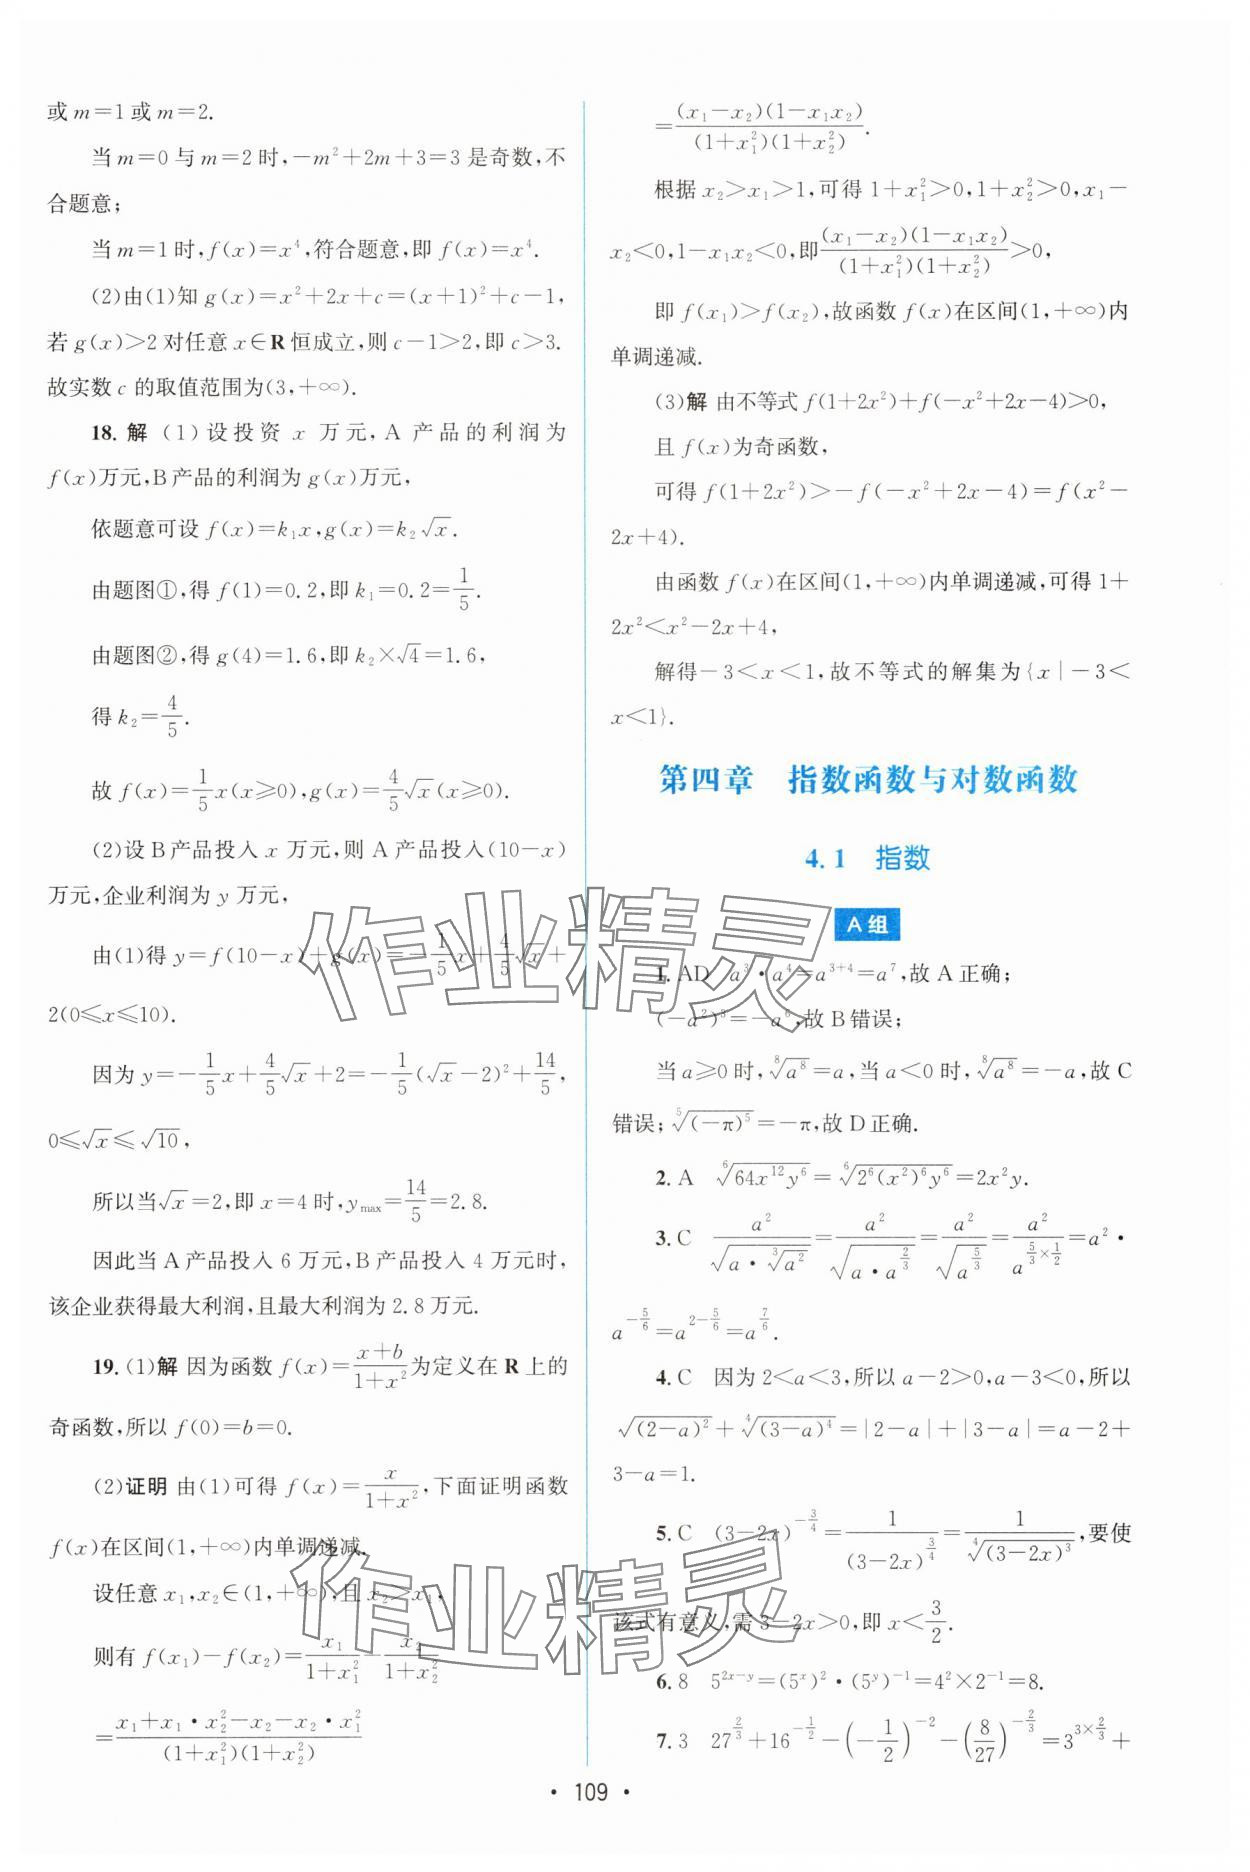 或 m=1 或 m=2.
当 m=0 与 m=2 时,-m²+2m+3=3 是奇数,不
合题意;
当 m=1 时,f(x)=x⁴,符合题意,即 f(x)=x⁴.
(2)由(1)知 g(x)=x²+2x+c=(x+1)²+c-1,
若 g(x)>2 对任意 x∈R 恒成立,则 c-1>2,即 c>3.
故实数 c 的取值范围为(3,+∞).
18. 解 (1)设投资 x 万元,A 产品的利润为
f(x)万元,B 产品的利润为 g(x)万元,
依题意可设 f(x)=k₁x,g(x)=k₂√x.
由题图①,得 f(1)=0.2,即 k₁=0.2=1/5.
由题图②,得 g(4)=1.6,即 k₂×√4=1.6,
得 k₂=4/5.
故 f(x)=1/5 x(x≥0),g(x)=4/5 √x(x≥0).
(2)设 B 产品投入 x 万元,则 A 产品投入(10-x)
万元,企业利润为 y 万元,
由(1)得 y=f(10-x)+g(x)=-1/5 x+4/5 √x+
2(0≤x≤10).
因为 y=-1/5 x+4/5 √x+2=-1/5(√x-2)²+14/5,
0≤√x≤√10,
所以当√x=2,即 x=4 时,y_max=14/5=2.8.
因此当 A 产品投入 6 万元,B 产品投入 4 万元时,
该企业获得最大利润,且最大利润为 2.8 万元.
19. (1)解 因为函数 f(x)=(x+b)/(1+x²)为定义在 R 上的
奇函数,所以 f(0)=b=0.
(2)证明 由(1)可得 f(x)=x/(1+x²),下面证明函数
f(x)在区间(1,+∞)内单调递减.
设任意 x₁,x₂∈(1,+∞),且 x₂>x₁,
则有 f(x₁)-f(x₂)=x₁/(1+x₁²)-x₂/(1+x₂²)
=(x₁+x₁•x₂²-x₂-x₂•x₁²)/((1+x₁²)(1+x₂²))
=(x₁-x₂)(1-x₁x₂)/((1+x₁²)(1+x₂²)).
根据 x₂>x₁>1,可得 1+x₁²>0,1+x₂²>0,x₁-
x₂<0,1-x₁x₂<0,即(x₁-x₂)(1-x₁x₂)/((1+x₁²)(1+x₂²))>0,
即 f(x₁)>f(x₂),故函数 f(x)在区间(1,+∞)内
单调递减.
(3)解 由不等式 f(1+2x²)+f(-x²+2x-4)>0,
且 f(x)为奇函数,
可得 f(1+2x²)>-f(-x²+2x-4)=f(x²-
2x+4).
由函数 f(x)在区间(1,+∞)内单调递减,可得 1+
2x²<x²-2x+4,
解得-3<x<1,故不等式的解集为{x|-3<
x<1}.
第四章 指数函数与对数函数
4.1 指数
A 组
1. AD a³•a⁴=a³⁺⁴=a⁷,故 A 正确;
(-a²)³=-a⁶,故 B 错误;
当 a≥0 时,⁸√(a⁸)=a,当 a<0 时,⁸√(a⁸)=-a,故 C
错误;⁵√((-π)⁵)=-π,故 D 正确.
2. A ⁶√(64x¹²y⁶)=⁶√(2⁶(x²)⁶y⁶)=2x²y.
3. C a²/√(a•³√(a²))=a²/√(a•a^(2/3))=a²/√(a^(5/3))=a²/a^(5/3×1/2)=a²•
a^(-5/6)=a^(2-5/6)=a^(7/6).
4. C 因为 2<a<3,所以 a-2>0,a-3<0,所以
√((2-a)²)+⁴√((3-a)⁴)=|2-a|+|3-a|=a-2+
3-a=1.
5. C (3-2x)^(-3/4)=1/(3-2x)^(3/4)=1/⁴√((3-2x)³),要使
该式有意义,需 3-2x>0,即 x<3/2.
6. 8 5^(2x-y)=(5ˣ)²•(5ʸ)⁻¹=4²×2⁻¹=8.
7. 3 27^(2/3)+16^(-1/2)-(-1/2)⁻²-(8/27)^(-2/3)=3^(3×2/3)+
• 109 •
作业精灵
作业精灵